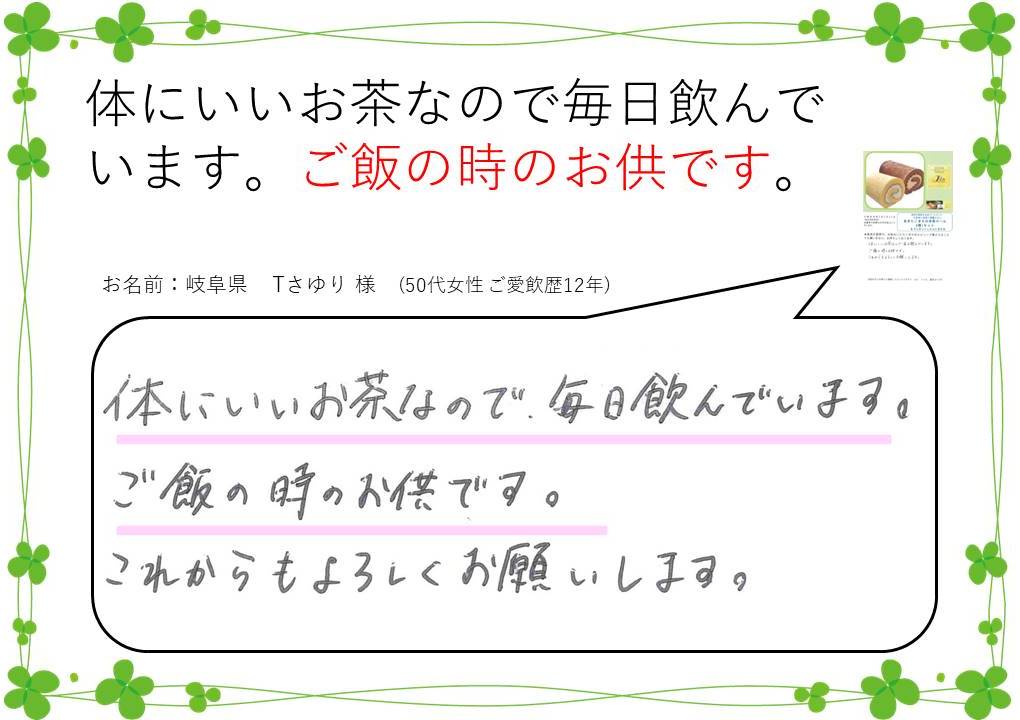 体にいいお茶なので毎日飲んで
います。ご飯の時のお供です。
お名前：岐阜県　Tさゆり 様　(50代女性 ご愛飲歴12年)
体にいいお茶なので、毎日飲んでいます。
ご飯の時のお供です。
これからもよろしくお願いします。